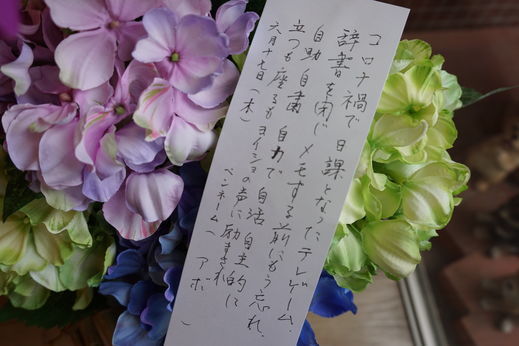 コロナ禍で 日課となった テレゲーム、
辞書を閉じ メモする前に もう忘れ、
自助自粛 自力で 自活 自主的に
立つも座るも ヨイショの声に 励まされ
六月十七日(木) ペンネーム( アボ )